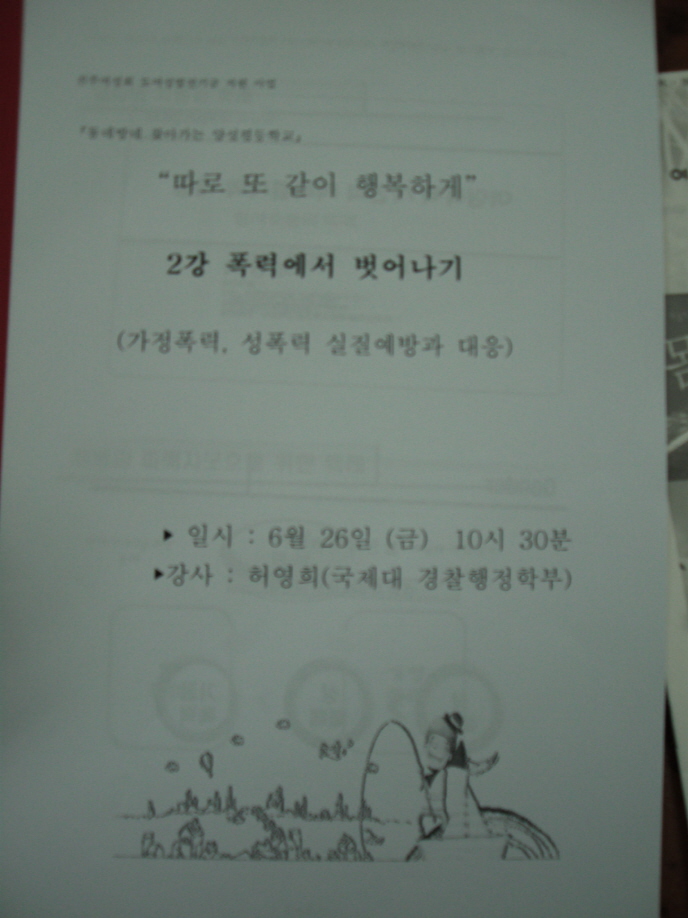 『동네방네 찾아가는 양성평등학교』
“따로 또 같이 행복하게”
2강 폭력에서 벗어나기
(가정폭력, 성폭력 실질예방과 대응)
▶ 일시 : 6월 26일 (금) 10시 30분
▶강사 : 허영희(국제대 경찰행정학부)